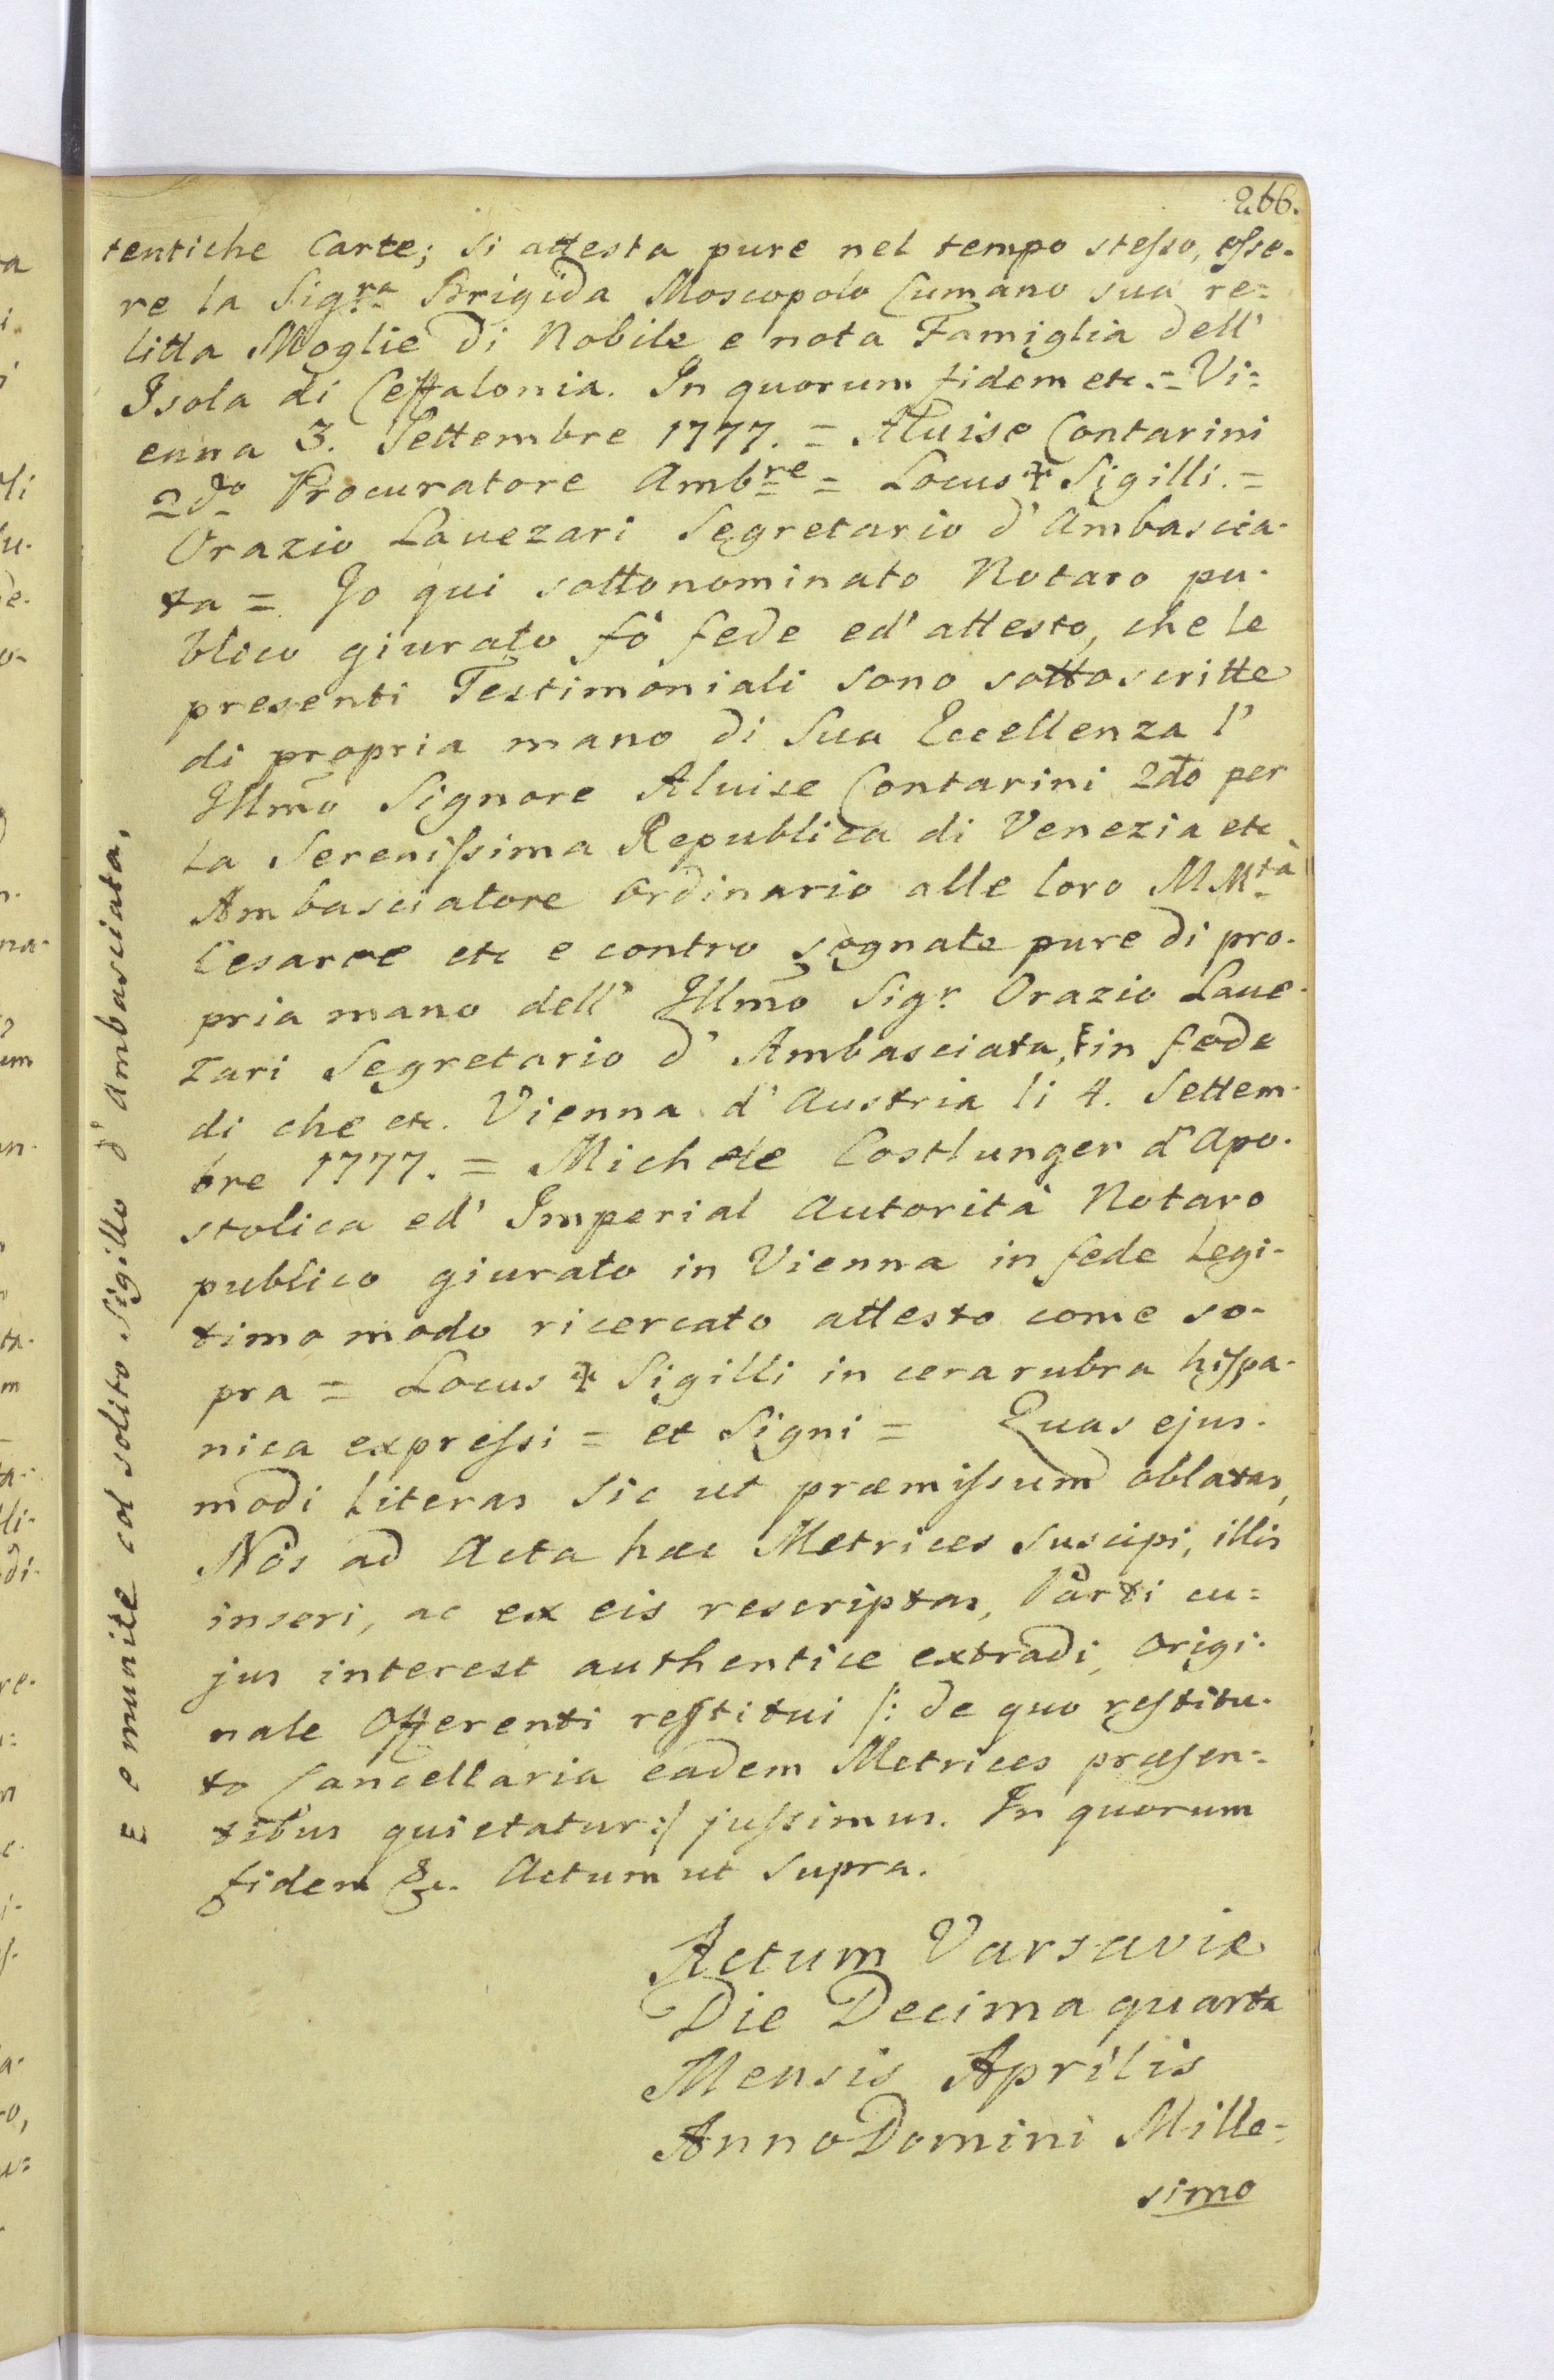 266.
tentiche Carte; si attesta pure nel tempo stesso, esse-
re la Sigra Brigida Moscopolo Cumano sua re=
litta Moglie di Nobile e nota Famiglia dell'
Isola di Ceffalonia. In quorum fidem etc. = Vi=
enna 3. Settembre 1777. = Aluise Contarini
2do Procuratore Ambre = Locus * Sigilli. =
Orazio Lavezari Segretario d' Ambascia-
ta = Jo qui sottonominato Notaro pu-
blico giurato fò fede ed' attesto, che le
presenti Testimoniali sono sottoscritte
di propria mano di Sua Eccellenza l'
Illmo Signore Aluise Contarini 2do per
La Serenissima Republica di Venezia etc
Ambasciatore ordinario alle loro MMtà
Cesaree etc e contro segnate pure di pro-
pria mano dell' Illmo Sigr Orazio Lave-
zari Segretario d' Ambasciata, E in fede
di che etc. Vienna d' Austria li 4. Settem-
bre 1777. = Michele Costlunger d' Apo-
stolica ed' Imperial Autorità Notaro
publico giurato in Vienna in fede Legi-
timo modo ricercato attesto come so-
pra = Locus * Sigilli in cera rubra hispa-
nica expressi = et Signi = Quas ejus-
modi Literas sic ut præmissum oblatas,
Nos ad Acta hæc Metrices suscipi, illis
inseri, ac ex eis rescriptas, Parti cu=
jus interest authentice extradi, origi-
nale Offerenti restitui /: de quo restitu-
to Cancellaria eadem Metrices præsen=
tibus quietatur :/ jussimus. In quorum
fidem &c. Actum ut supra.
Actum Varsaviæ
Die Decima quarta
Mensis Aprilis
Anno Domini Mille-
simo
E e munite col solito Sigillo d' Ambasciata,